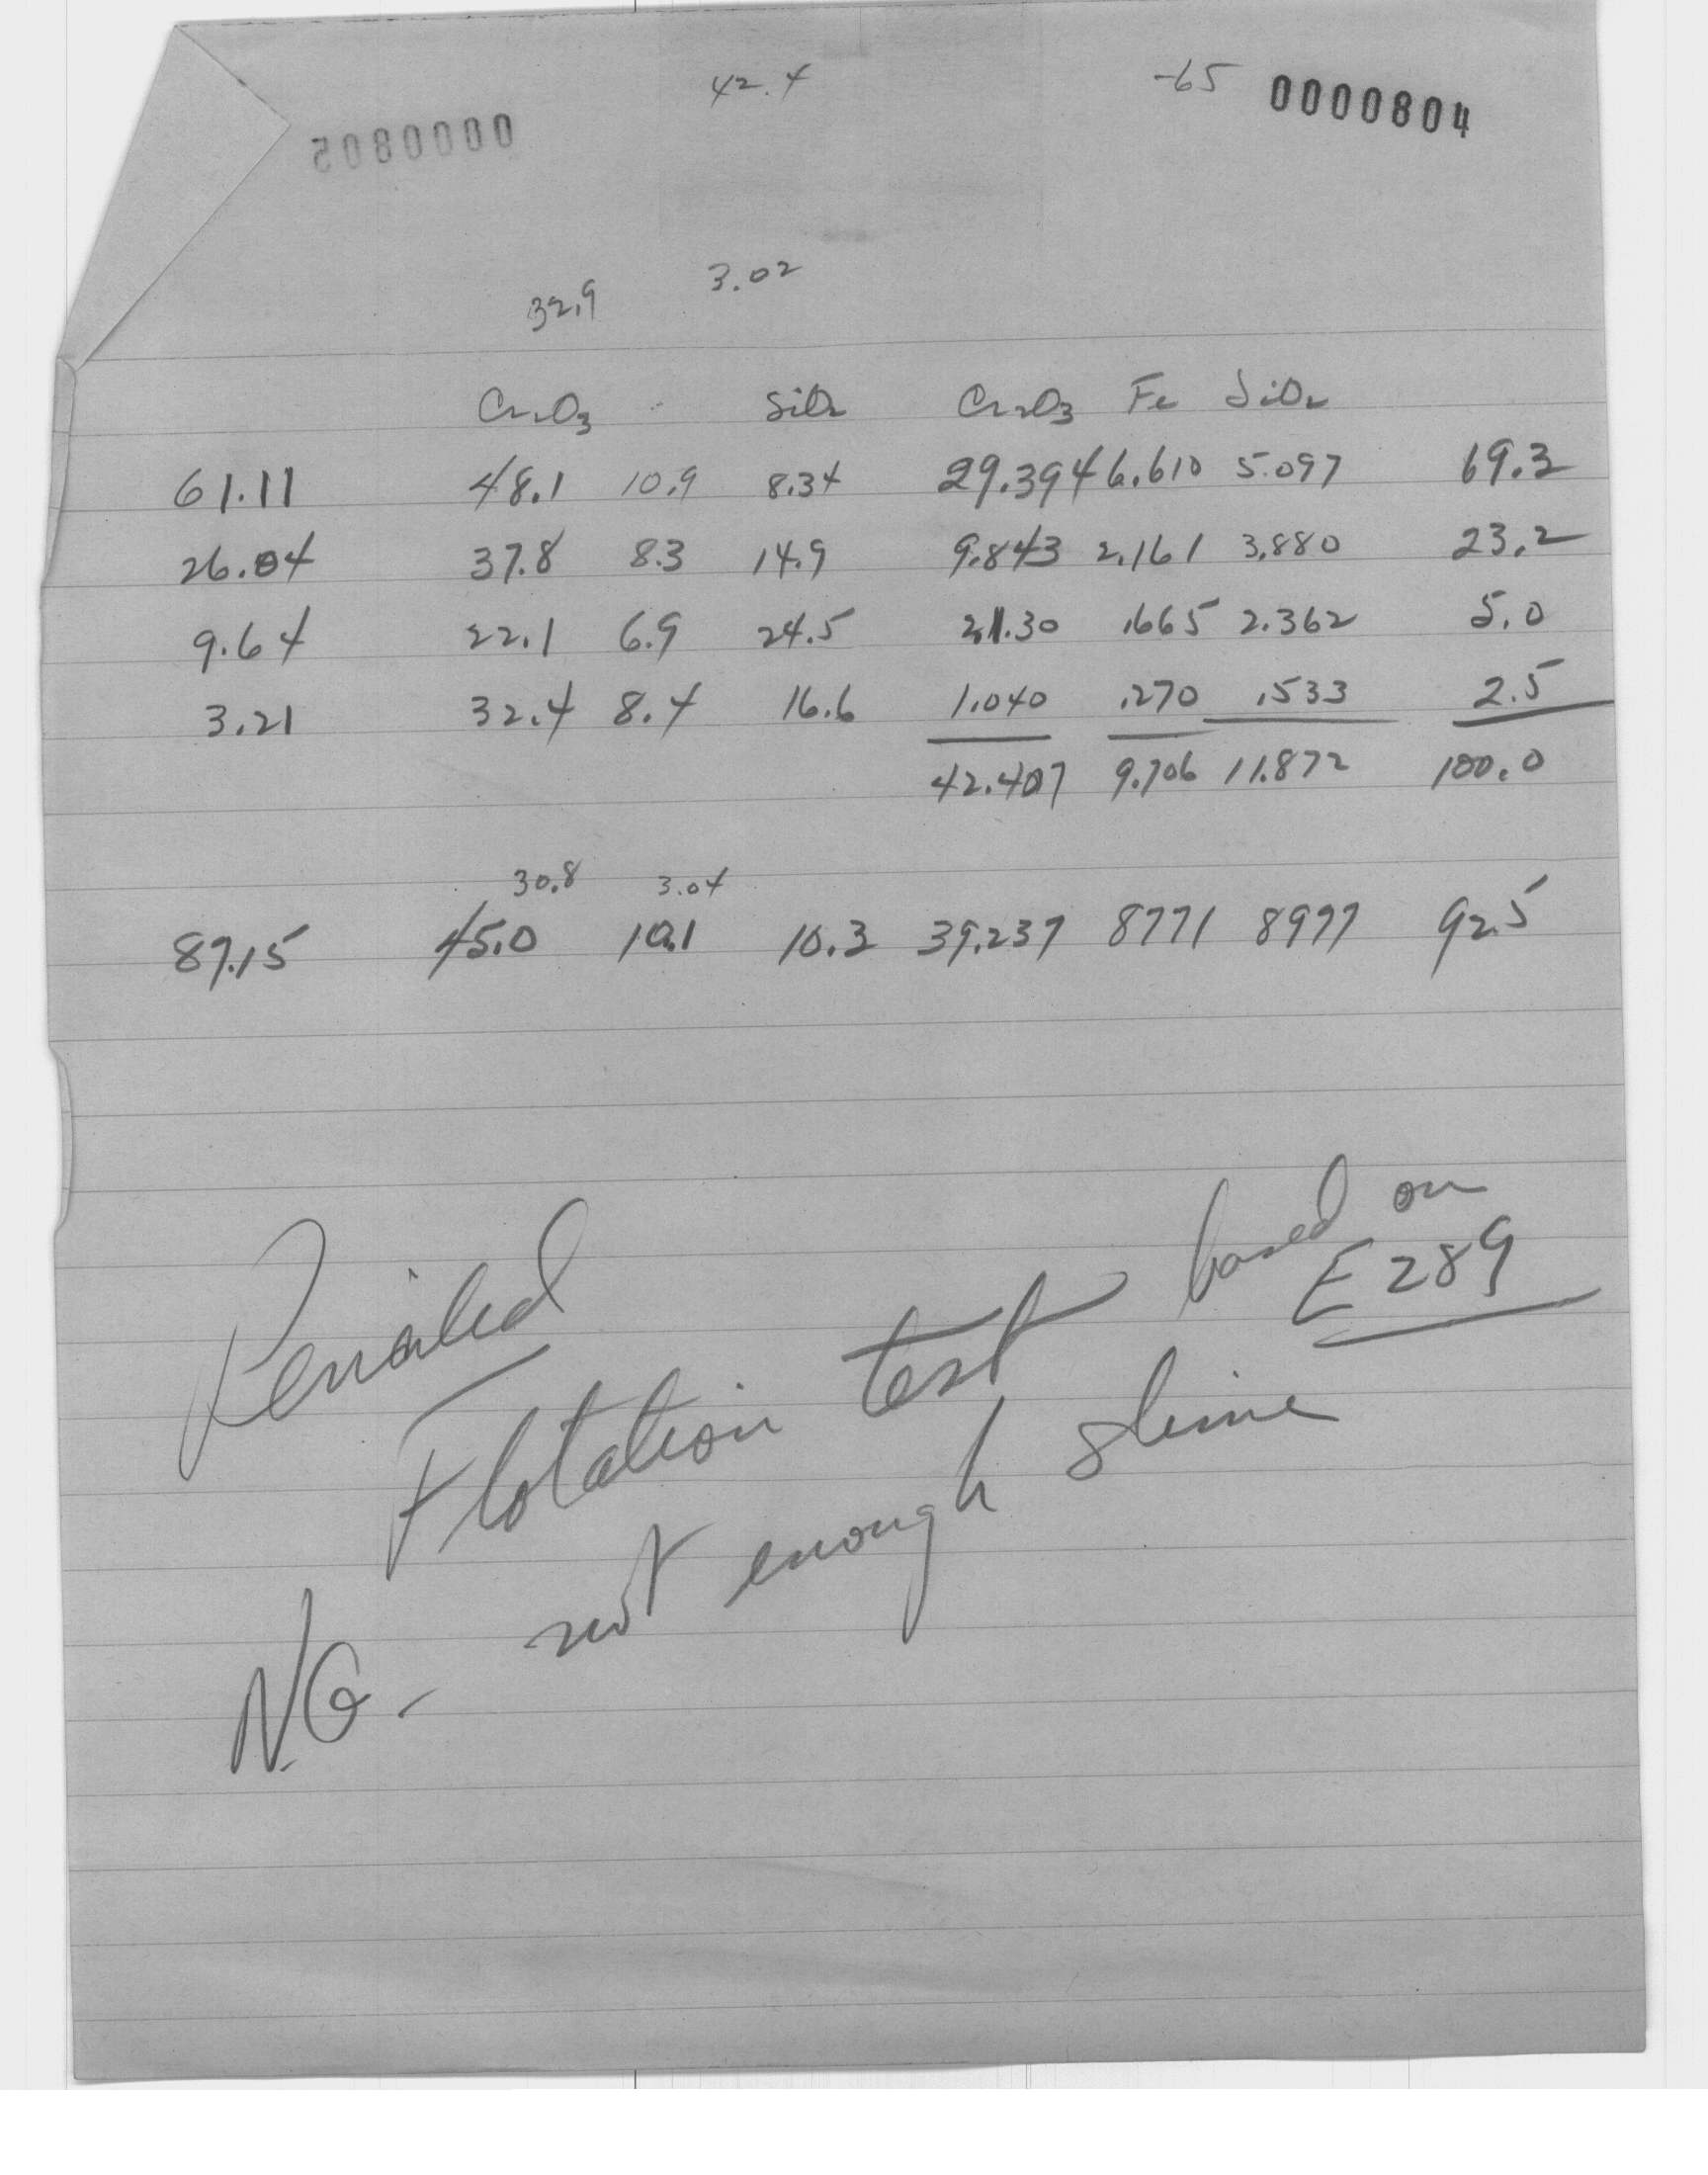 42.4 -65 0000804
0000805
32.9 3.02
Cr2O3 SiO2 Cr2O3 Fe SiO2
61.11 48.1 10.9 8.34 29.394 6.610 5.097 69.3
26.04 37.8 8.3 14.9 9.843 2.161 3.880 23.2
9.64 22.1 6.9 24.5 2.130 .665 2.362 5.0
3.21 32.4 8.4 16.6 1.040 .270 .533 2.5
42.407 9.706 11.872 100.0
30.8 3.04
87.15 45.0 10.1 10.3 39.237 8771 8977 92.5
Flotation test based on
E 289
N.G. - not enough slime